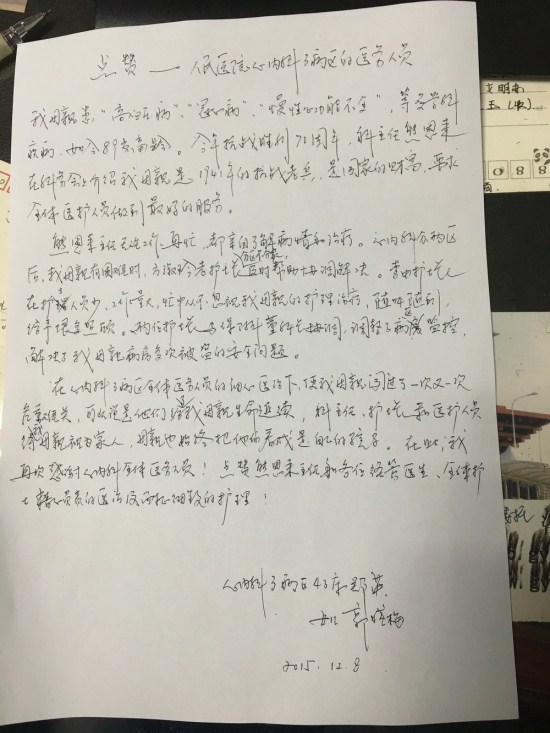 点赞——人民医院心内科3病区的医务人员
我母亲患“高血压病”、“冠心病”、“慢性心功能不全”,等多学科
疾病,如今89岁高龄。今年抗战胜利70周年,科主任熊恩来
在科务会上介绍我母亲是1941年的抗战老兵,是国家的财富,要求
全体医护人员做到最好的服务。
熊恩来主任无论工作再忙,都亲自了解病情和治疗。心内科分两区
后,我母亲有困难时,护士长帮助协调解决。护士长
在护理人员少,工作量大,忙中从不忽视我母亲的护理治疗,随叫随到,
给予填空照顾。两位护士长与保卫科董科长协调,调整了病房监控,
解决了我母亲病房多次被盗的安全问题。
在心内科3病区全体医务人员的细心医治下,使我母亲闯过了一次又一次
危重难关,可以说是他们给我母亲生命延续,科主任、护士长和医护人员
待我母亲视为家人,母亲也始终把他们看成是自己的孩子。在此,我
再次感谢心内科全体医务人员!点赞熊恩来主任和各位经管医生、全体护
士精心负责的医治及细致的护理!
心内科3病区43床郑英
女儿 郭晓梅
2015.12.8
文明南
088